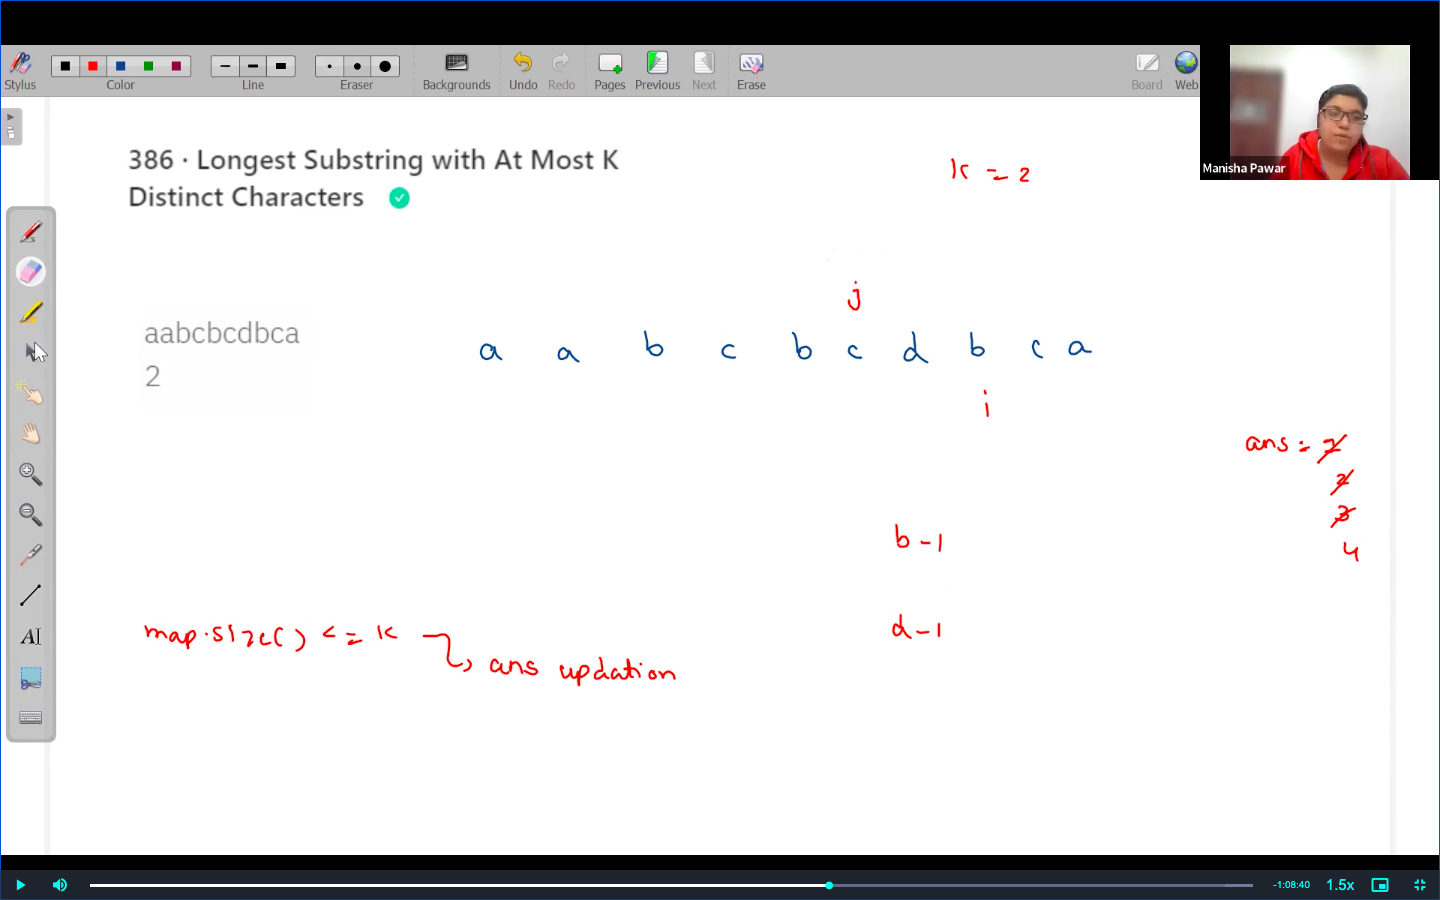 Stylus
Color
Line
Eraser
Backgrounds
Undo
Redo
Pages
Previous
Next
Erase
Board
Web
Manisha Pawar
386 · Longest Substring with At Most K
Distinct Characters
k = 2
j
aabcbcdbca
2
a a b c b c d b c a
i
ans = 2
2
3
4
b - 1
d - 1
map.size() <= k
ans updation
AI
-1:08:40
1.5x